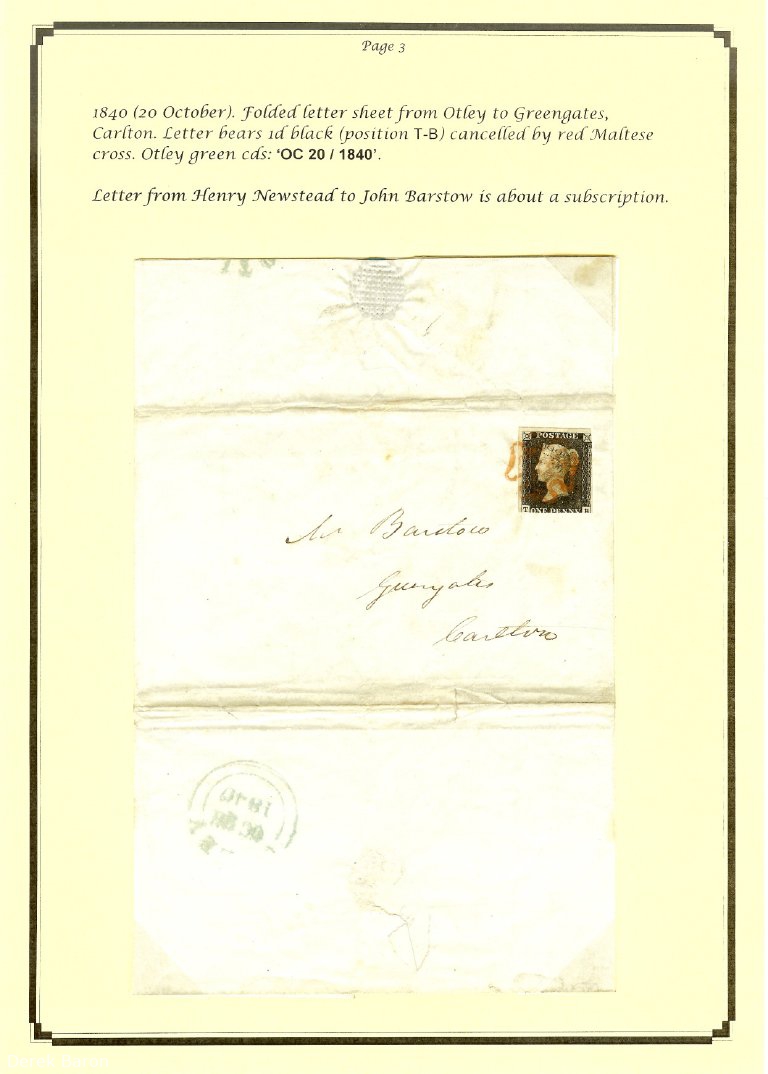 Page 3
1840 (20 October). Folded letter sheet from Otley to Greengates,
Carlton. Letter bears 1d black (position T-B) cancelled by red Maltese
cross. Otley green cds: ‘OC 20 / 1840’.
Letter from Henry Newstead to John Barstow is about a subscription.
POSTAGE
T ONE PENNY B
Mr Barstow
Greengates
Carlton
1840
OC 20